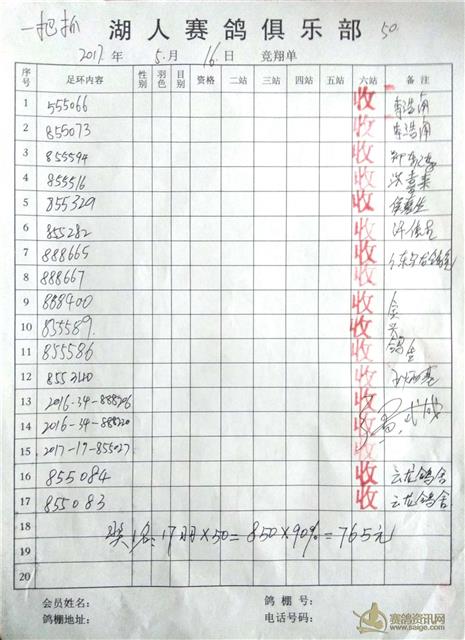 一把抓 湖人赛鸽俱乐部 50
2017年 5月 16日 竞翔单
序号 足环内容 性别 羽色 目别 资格 二站 三站 四站 五站 六站 备注
1 555066 收
2 855073 收
3 855594 收
4 855516 收
5 855329 收
6 855282 收
7 888665 收
8 888667 收
9 888400 收
10 855589 收
11 855586 收
12 855340 收
13 2016-34-888206 收
14 2016-34-888220 收
15 2017-17-855027 收
16 855084 收 云龙鸽舍
17 855083 收 云龙鸽舍
18 奖1名 17羽×50=850×90%=765元
19
20
会员姓名: 鸽棚号:
鸽棚地址: 电话号码:
赛鸽资讯网
www.saige.com